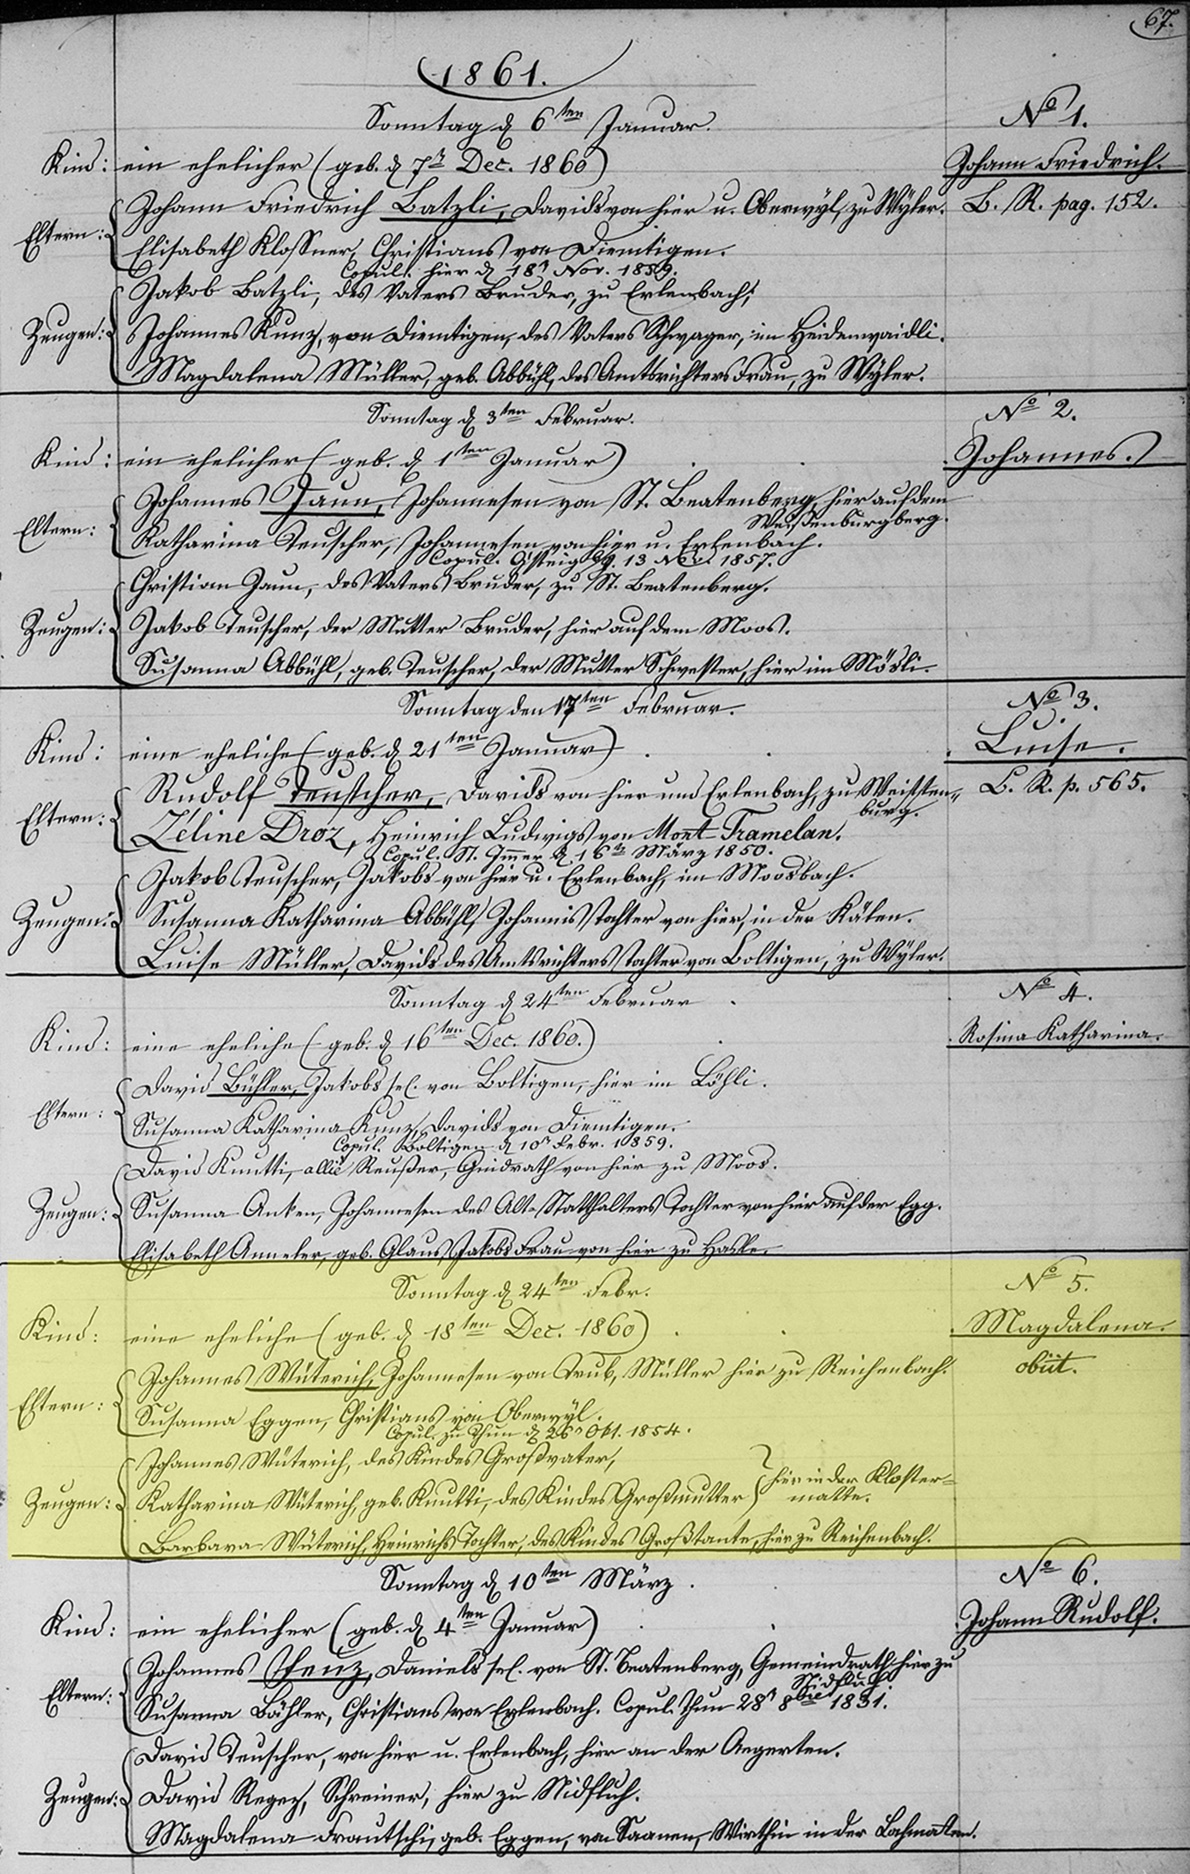 67.
1861.
Sonntag d. 6ten Januar. No 1.
Kind: ein ehelicher (geb. d. 7n Dec. 1860) Johann Friedrich.
Eltern: Johann Friedrich Batzli, Davids von hier u. Oberwyl, zu Wyler. B. R. pag. 152.
Elisabeth Klossner, Christians von Diemtigen.
Copul. hier d. 18n Nov. 1859.
Jakob Batzli, des Vaters Bruder, zu Erlenbach,
Zeugen: Johannes Kunz, von Diemtigen, des Vaters Schwager, im Heidenwaidli.
Magdalena Müller, geb. Abbühl, des Amtsrichters Frau, zu Wyler.
Sonntag d. 3ten Februar. No 2.
Kind: ein ehelicher (geb. d. 1ten Januar) Johannes.
Eltern: Johannes Jaun, Johannesen von St. Beatenberg, hier auf dem
Weissenburgberg.
Katharina Teuscher, Johannesen von hier u. Erlenbach.
Copul. Gsteig 13 Nov. 1857.
Christian Jaun, des Vaters Bruder, zu St. Beatenberg.
Zeugen: Jakob Teuscher, der Mutter Bruder, hier auf dem Moos.
Susanna Abbühl, geb. Teuscher, der Mutter Schwester, hier im Mösli.
Sonntag den 17ten Februar. No 3.
Kind: eine eheliche (geb. d. 21ten Januar) Luise.
Eltern: Rudolf Teuscher, Davids von hier und Erlenbach, zu Weissen- B. R. p. 565.
burg.
Zéline Droz, Heinrich Ludwigs von Mont-Tramelan.
Copul. St. Immer d. 16n März 1850.
Jakob Teuscher, Jakobs von hier u. Erlenbach, im Moosbach.
Zeugen: Susanna Katharina Abbühl, Johannis Tochter von hier, in der Kälen.
Luise Müller, Davids des Amtsrichters Tochter von Boltigen, zu Wyler.
Sonntag d. 24ten Februar No 4.
Kind: eine eheliche (geb. d. 16ten Dec. 1860.) Rosina Katharina.
Eltern: David Bühler, Jakobs sel. von Boltigen, hier im Löhli.
Susanna Katharina Kunz, Davids von Diemtigen.
Copul. Boltigen d. 10n Febr. 1859.
David Knutti, allié Reußer, Gmdrath von hier zu Moos.
Zeugen: Susanna Anken, Johannesen des Alt-Statthalters Tochter von hier auf der Egg.
Elisabeth Anneler, geb. Glaus, Jakobs Frau von hier zu Hasle.
Sonntag d. 24ten Febr. No 5.
Kind: eine eheliche (geb. d. 18ten Dec. 1860) Magdalena.
Eltern: Johannes Wüterich, Johannesen von Trub, Müller hier zu Reichenbach. obiit.
Susanna Eggen, Christians von Oberwyl.
Copul. zu Thun d. 26n Okt. 1854.
Johannes Wüterich, des Kindes Großvater,
Zeugen: Katharina Wüterich, geb. Knutti, des Kindes Großmutter hier in der Kloster-
matte.
Barbara Wüterich, Heinrichs Tochter, des Kindes Großtante, hier zu Reichenbach.
Sonntag d. 10ten März. No 6.
Kind: ein ehelicher (geb. d. 4ten Januar) Johann Rudolf.
Eltern: Johannes Daniels sel. von St. Beatenberg, Gemeindrath hier zu
Nidfluh.
Susanna Bähler, Christians von Erlenbach. Copul. Thun 28n 8bre
David Teuscher, von hier u. Erlenbach, hier an der Aegerten.
Zeugen: David Regez, Schreiner, hier zu Nidfluh.
Magdalena Frautschi, geb. Eggen, von Saanen, Wirthin in der